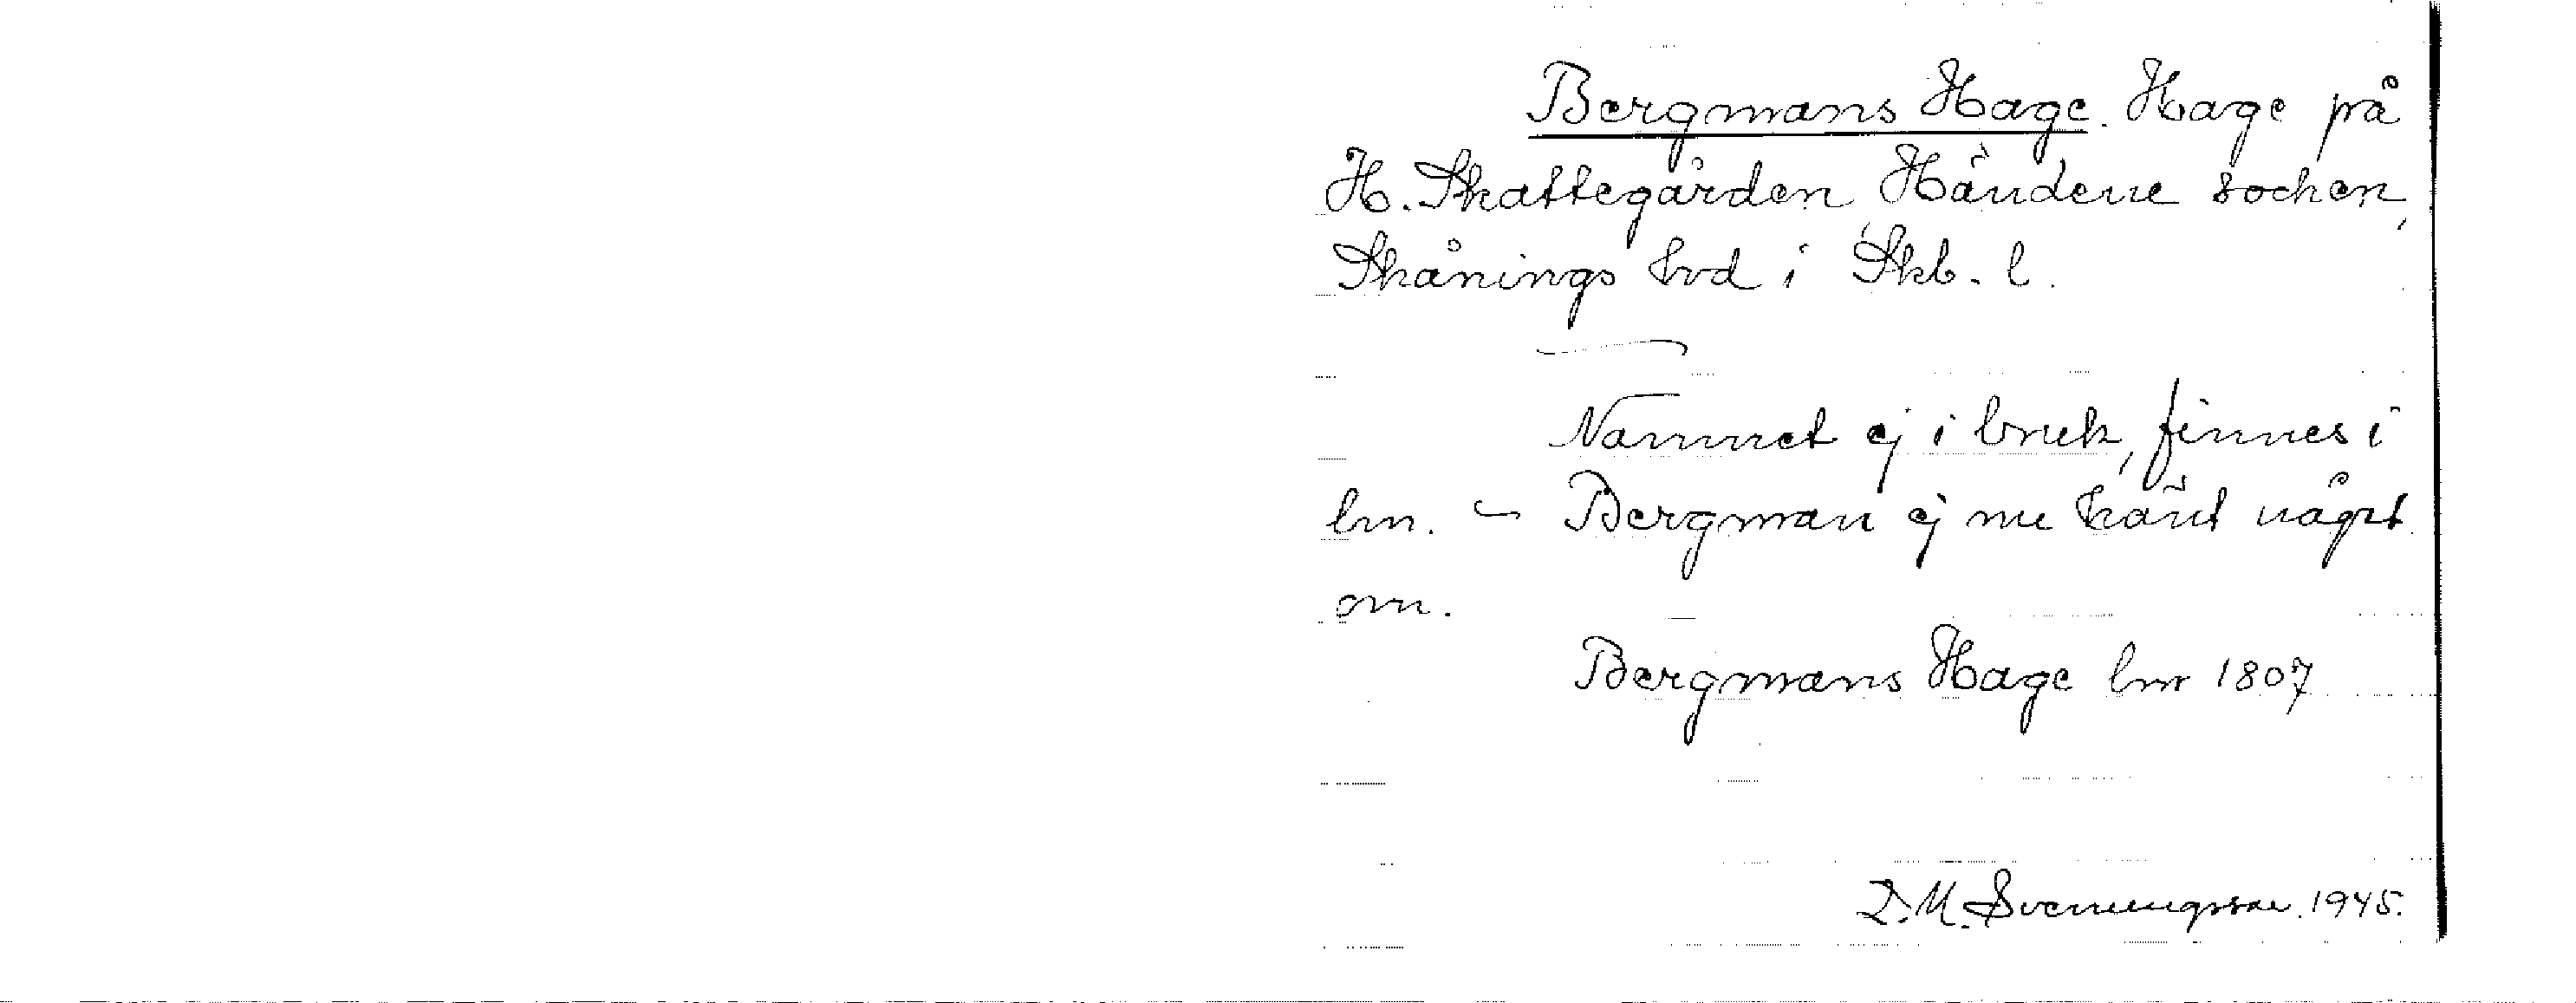 Bergmans Hage. Hage på
H. Skattegården, Händene socken,
Skånings hd i Skb. l.
Namnet ej i bruk, finnes i
lm. – Bergman ej nu känt något
om.
Bergmans Hage lm 1807
D. M. Svenungsson. 1945.